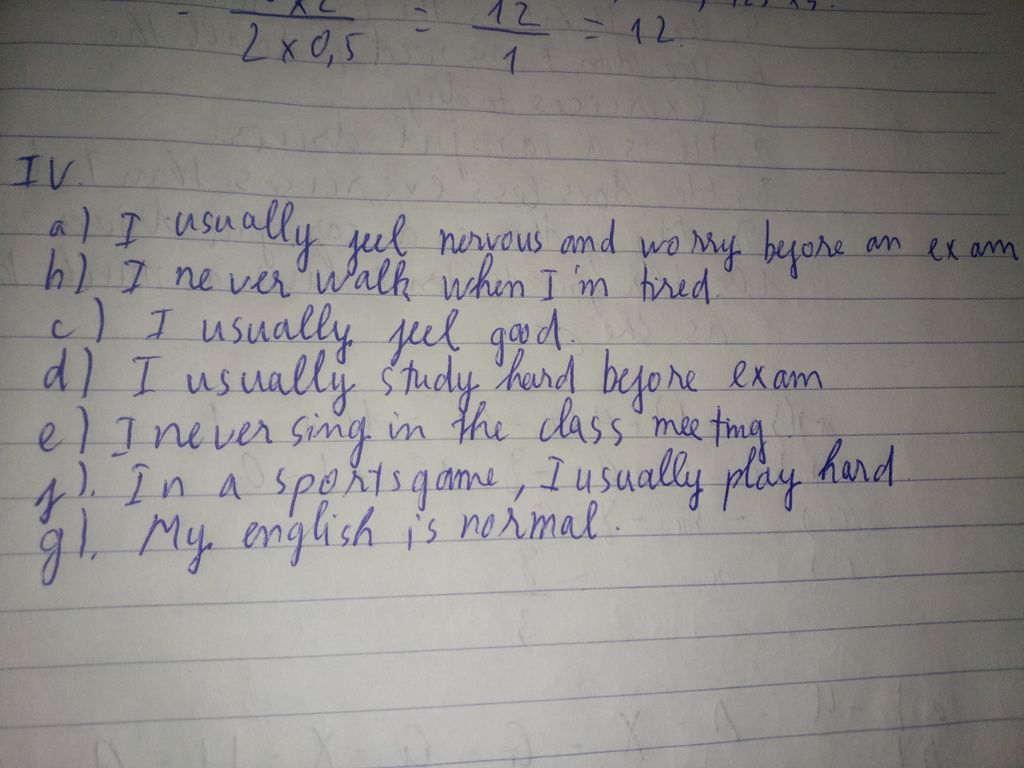 2 x 0,5 = 12 / 1 = 12
IV.
a) I usually feel nervous and worry before an exam
b) I never walk when I'm tired.
c) I usually feel good.
d) I usually study hard before exam
e) I never sing in the class meeting
f). In a sports game, I usually play hard
g). My english is normal.